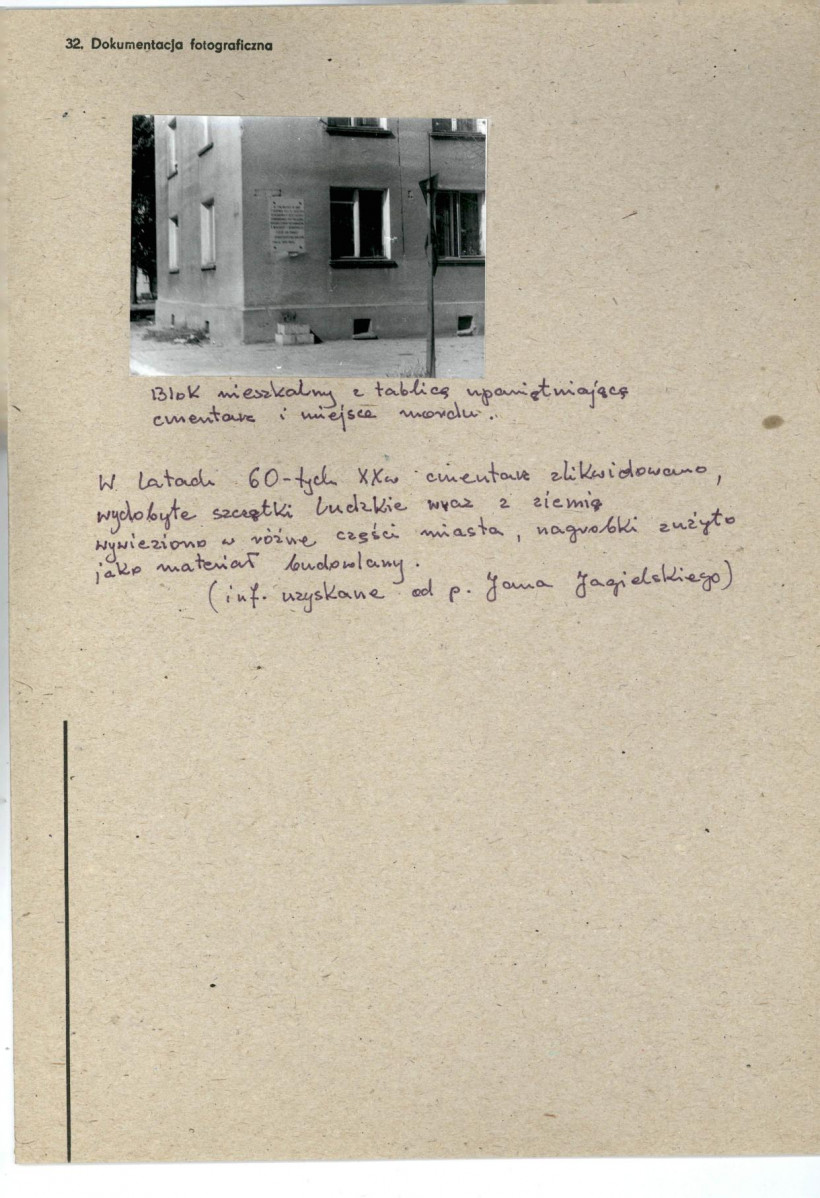 32. Dokumentacja fotograficzna
Blok mieszkalny z tablicą upamiętniającą
cmentarz i miejsce mordu.
W latach 60-tych XXw cmentarz zlikwidowano,
wydobyte szczątki ludzkie wraz z ziemią
wywieziono w różne części miasta, nagrobki zużyto
jako materiał budowlany.
(inf. uzyskane od p. Jana Jagielskiego)